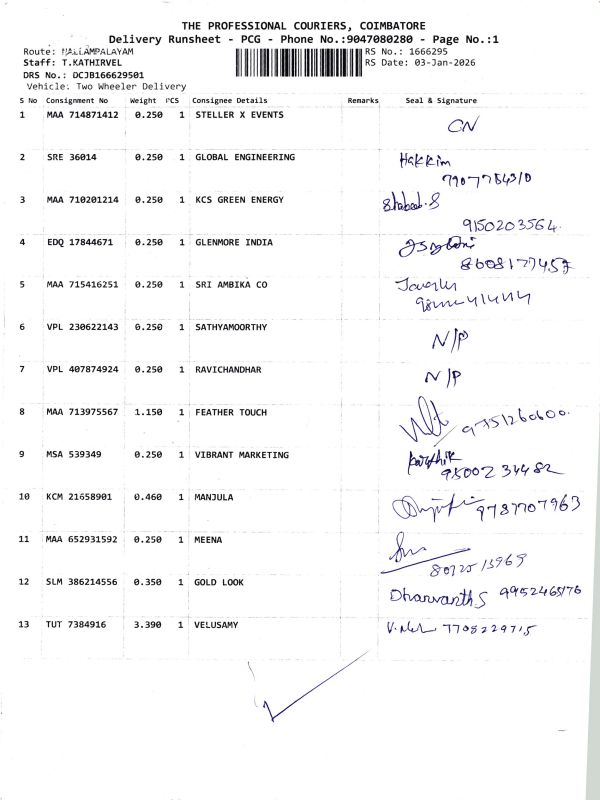 THE PROFESSIONAL COURIERS, COIMBATORE
Delivery Runsheet - PCG - Phone No.:9047080280 - Page No.:1
Route: NALLAMPALAYAM
RS No.: 1666295
Staff: T.KATHIRVEL
RS Date: 03-Jan-2026
DRS No.: DCJB166629501
Vehicle: Two Wheeler Delivery
S No Consignment No Weight PCS Consignee Details Remarks Seal & Signature
1 MAA 714871412 0.250 1 STELLER X EVENTS CN
2 SRE 36014 0.250 1 GLOBAL ENGINEERING Hakkim
3 MAA 710201214 0.250 1 KCS GREEN ENERGY
9150203564
4 EDQ 17844671 0.250 1 GLENMORE INDIA
8608177457
5 MAA 715416251 0.250 1 SRI AMBIKA CO
6 VPL 230622143 0.250 1 SATHYAMOORTHY N/P
7 VPL 407874924 0.250 1 RAVICHANDHAR N/P
8 MAA 713975567 1.150 1 FEATHER TOUCH 9751260600.
9 MSA 539349 0.250 1 VIBRANT MARKETING Karthik
9500234482
10 KCM 21658901 0.460 1 MANJULA 9787707963
11 MAA 652931592 0.250 1 MEENA
12 SLM 386214556 0.350 1 GOLD LOOK Dharvanth S
13 TUT 7384916 3.390 1 VELUSAMY 7708229715